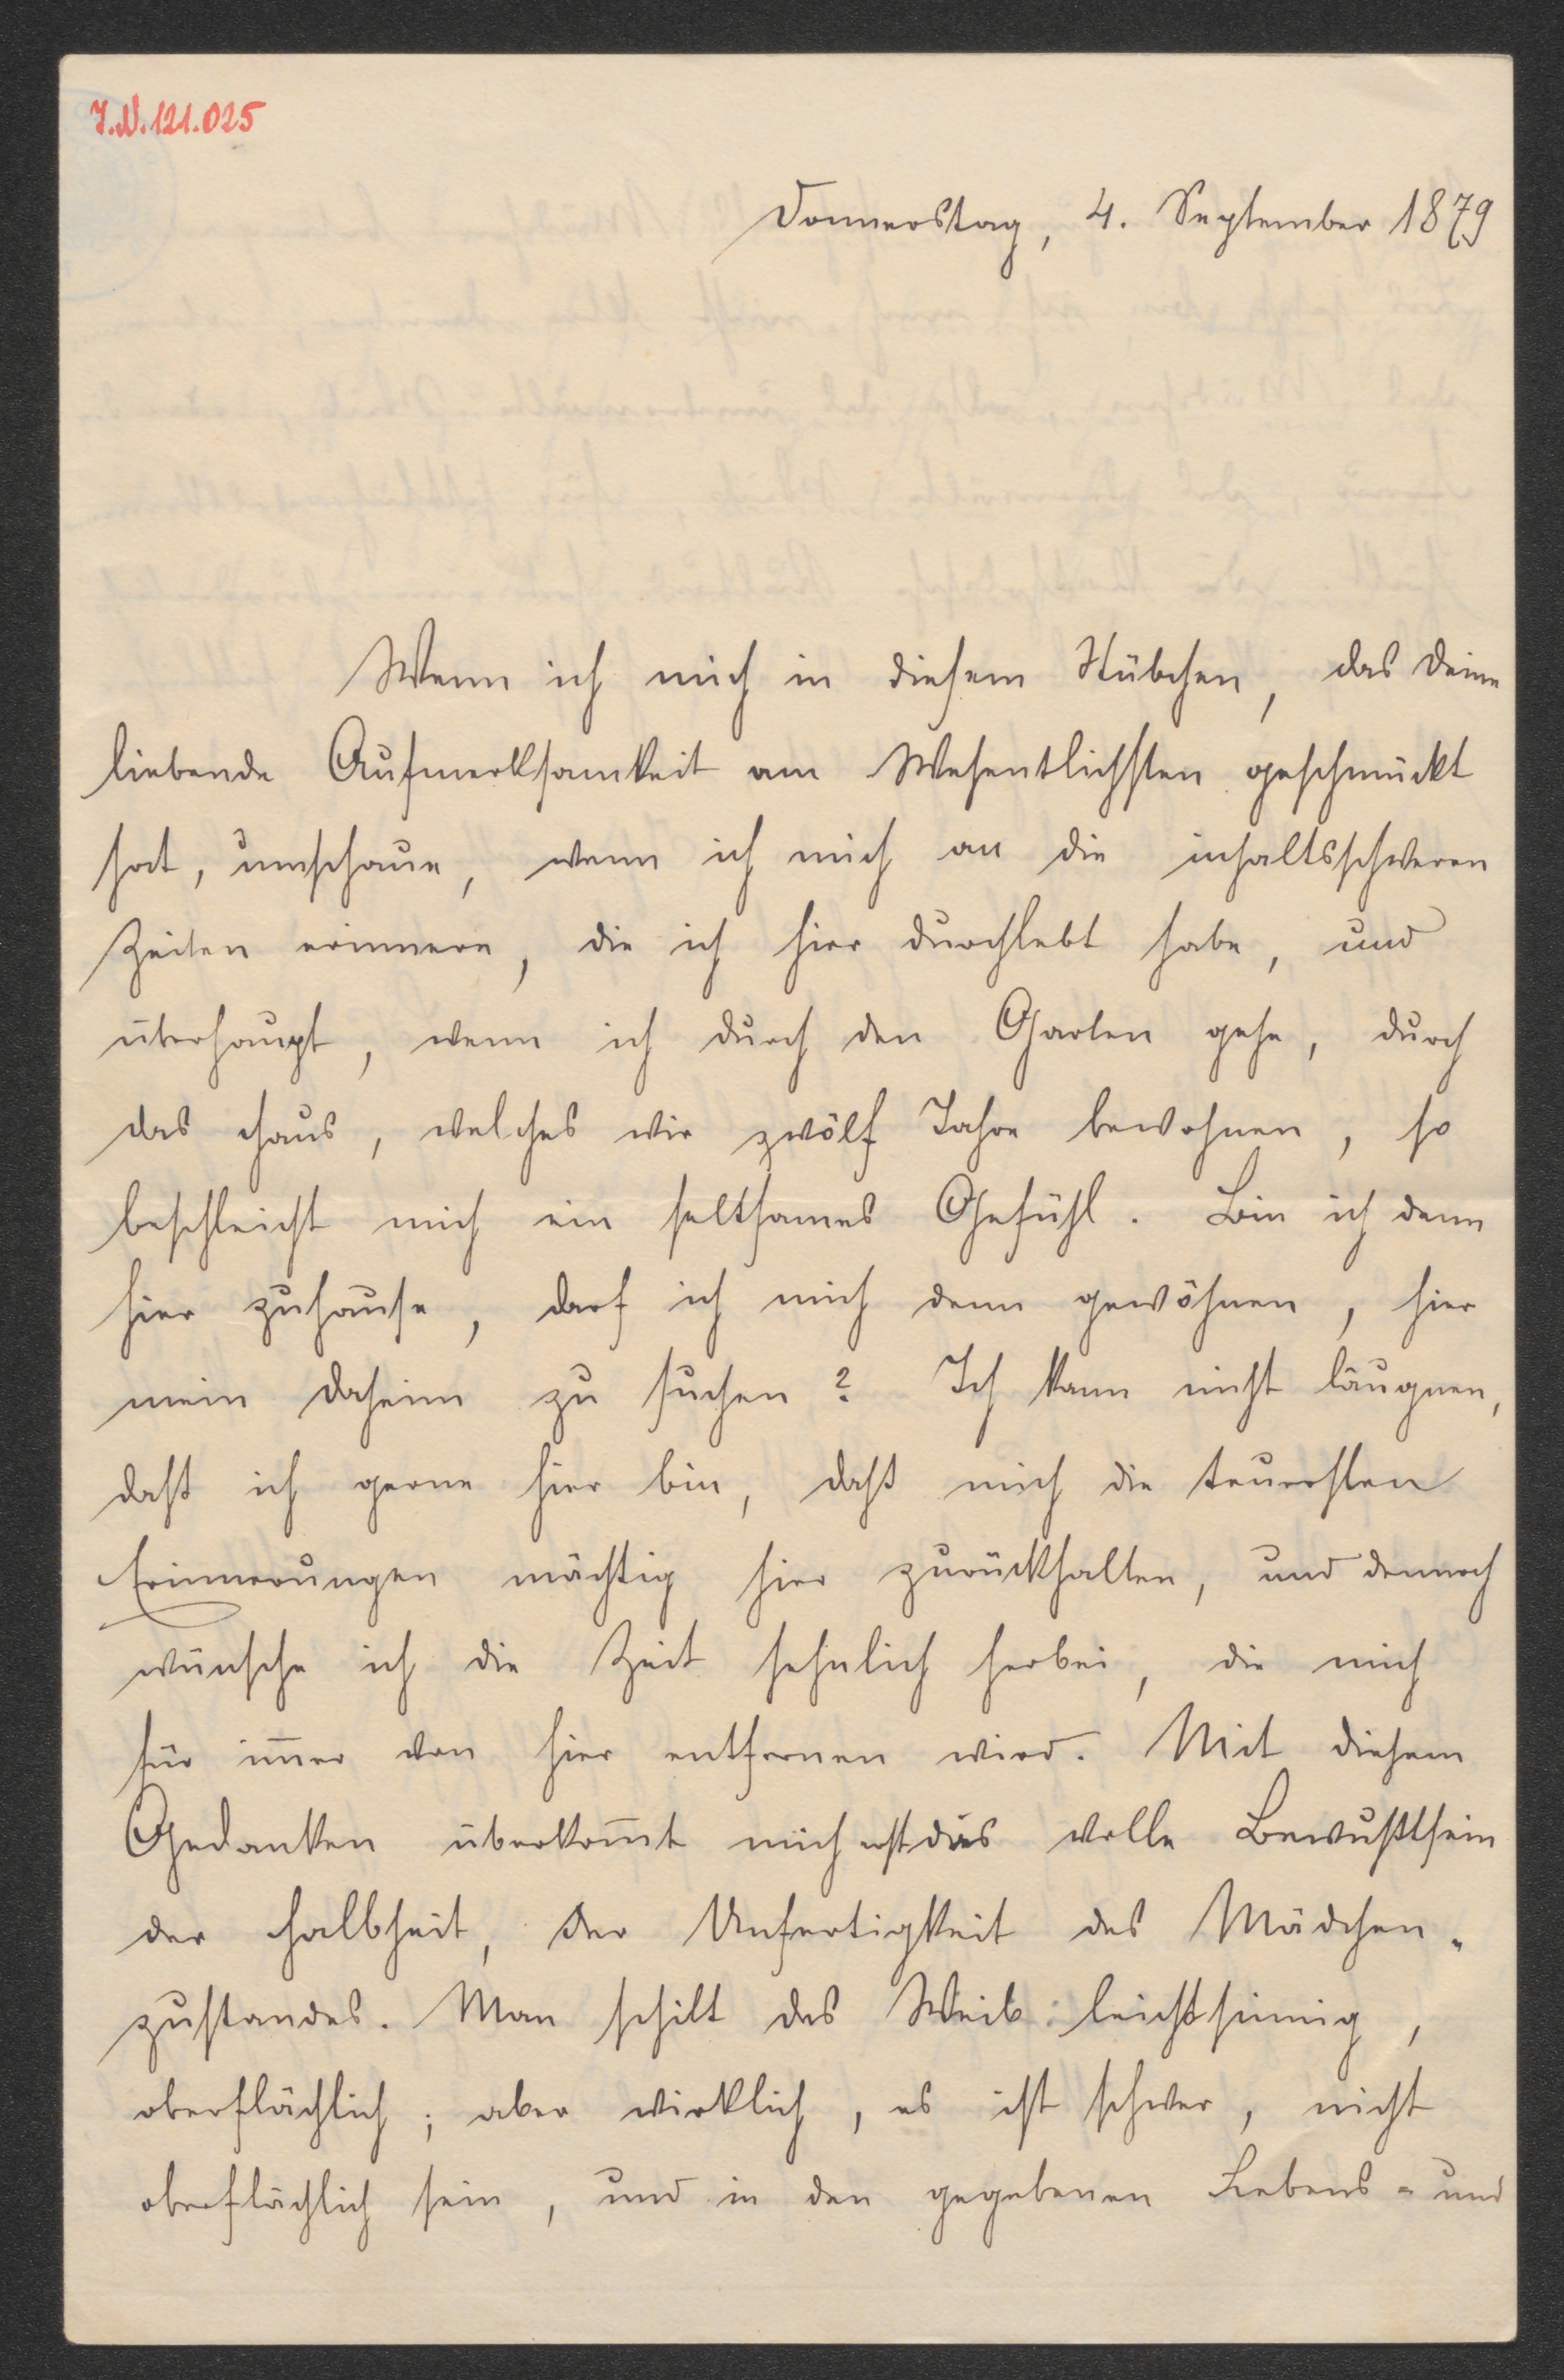 J.N. 121.025
Donnerstag, 4. September 1879
Wenn ich mich in diesem Stübchen, das Deine
liebende Aufmerksamkeit am Wesentlichsten geschmückt
hat, umschaue, wenn ich mich an die inhaltsschweren
Zeiten erinnere, die ich hier durchlebt habe, und
überhaupt, wenn ich durch den Garten gehe, durch
das Haus, welches wir zwölf Jahre bewohnen, so
beschleicht mich ein seltsames Gefühl. Bin ich denn
hier zuhause, darf ich mich denn gewöhnen, hier
mein Daheim zu suchen? Ich kann nicht läugnen,
daß ich gerne hier bin, daß mich die teuersten
Erinnerungen mächtig hier zurückhalten, und dennoch
wünsche ich die Zeit sehnlich herbei, die mich
für im̅er von hier entfernen wird. Mit diesem
Gedanken überkom̅t mich erst das volle Bewußtsein
der Halbheit, der Unfertigkeit des Mädchen-
zustandes. Man schilt das Weib leichtsinnig,
oberflächlich; aber wirklich, es ist schwer, nicht
oberflächlich sein, und in den gegebenen Lebens- und